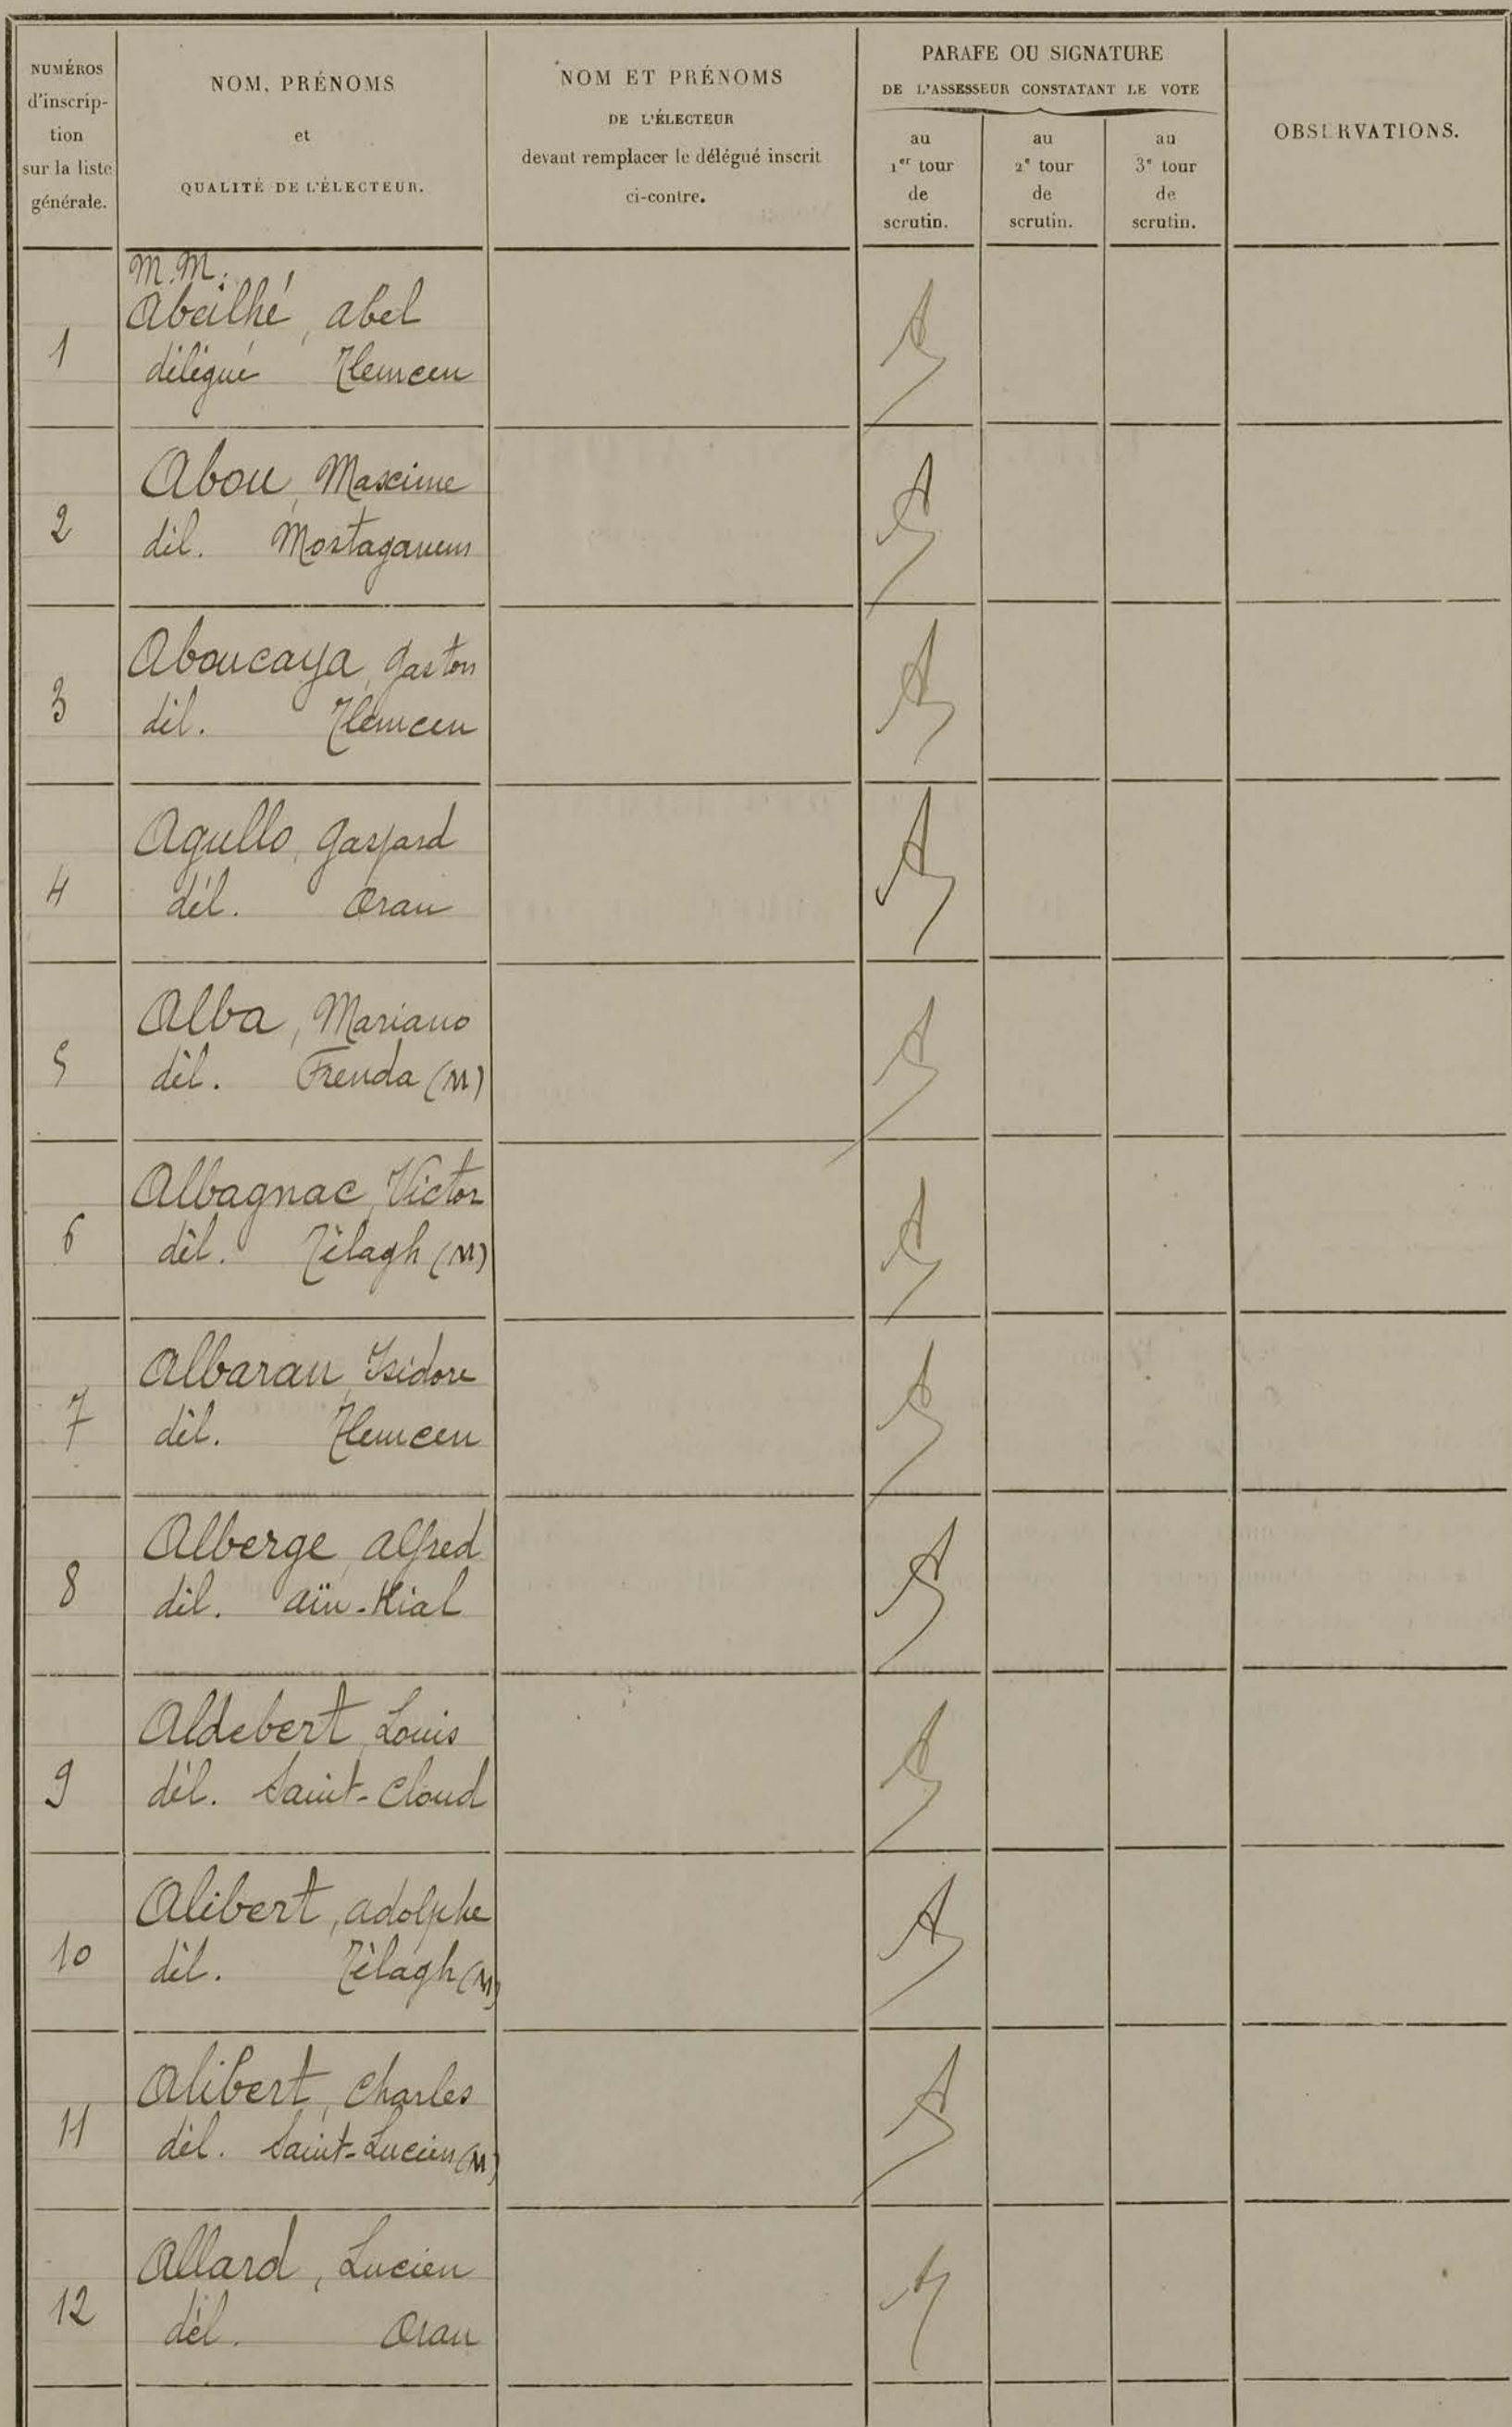 NUMÉROS
d'inscrip-
tion
sur la liste
générale.
NOM, PRÉNOMS
et
QUALITÉ DE L'ÉLECTEUR.
NOM ET PRÉNOMS
DE L'ÉLECTEUR
devant remplacer le délégué inscrit
ci-contre.
PARAFE OU SIGNATURE
DE L'ASSESSEUR CONSTATANT LE VOTE
au
1er tour
de
scrutin.
au
2e tour
de
scrutin.
au
3e tour
de
scrutin.
OBSERVATIONS.
M.M.
1 Abeilhé, Abel
délégué Tlemcen
2 Abou, Maxime
dél. Mostaganem
3 Aboucaya, Gaston
dél. Tlemcen
4 Agullo, Gaspard
dél. Oran
5 Alba, Mariano
dél. Frenda (M)
6 Albagnac, Victor
dél. Télagh (M)
7 Albaran, Isidore
dél. Tlemcen
8 Alberge, Alfred
dél. Aïn-Kial
9 Aldebert, Louis
dél. Saint-Cloud
10 Alibert, Adolphe
dél. Télagh (M)
11 Alibert, Charles
dél. Saint-Lucien (M)
12 Allard, Lucien
dél. Oran